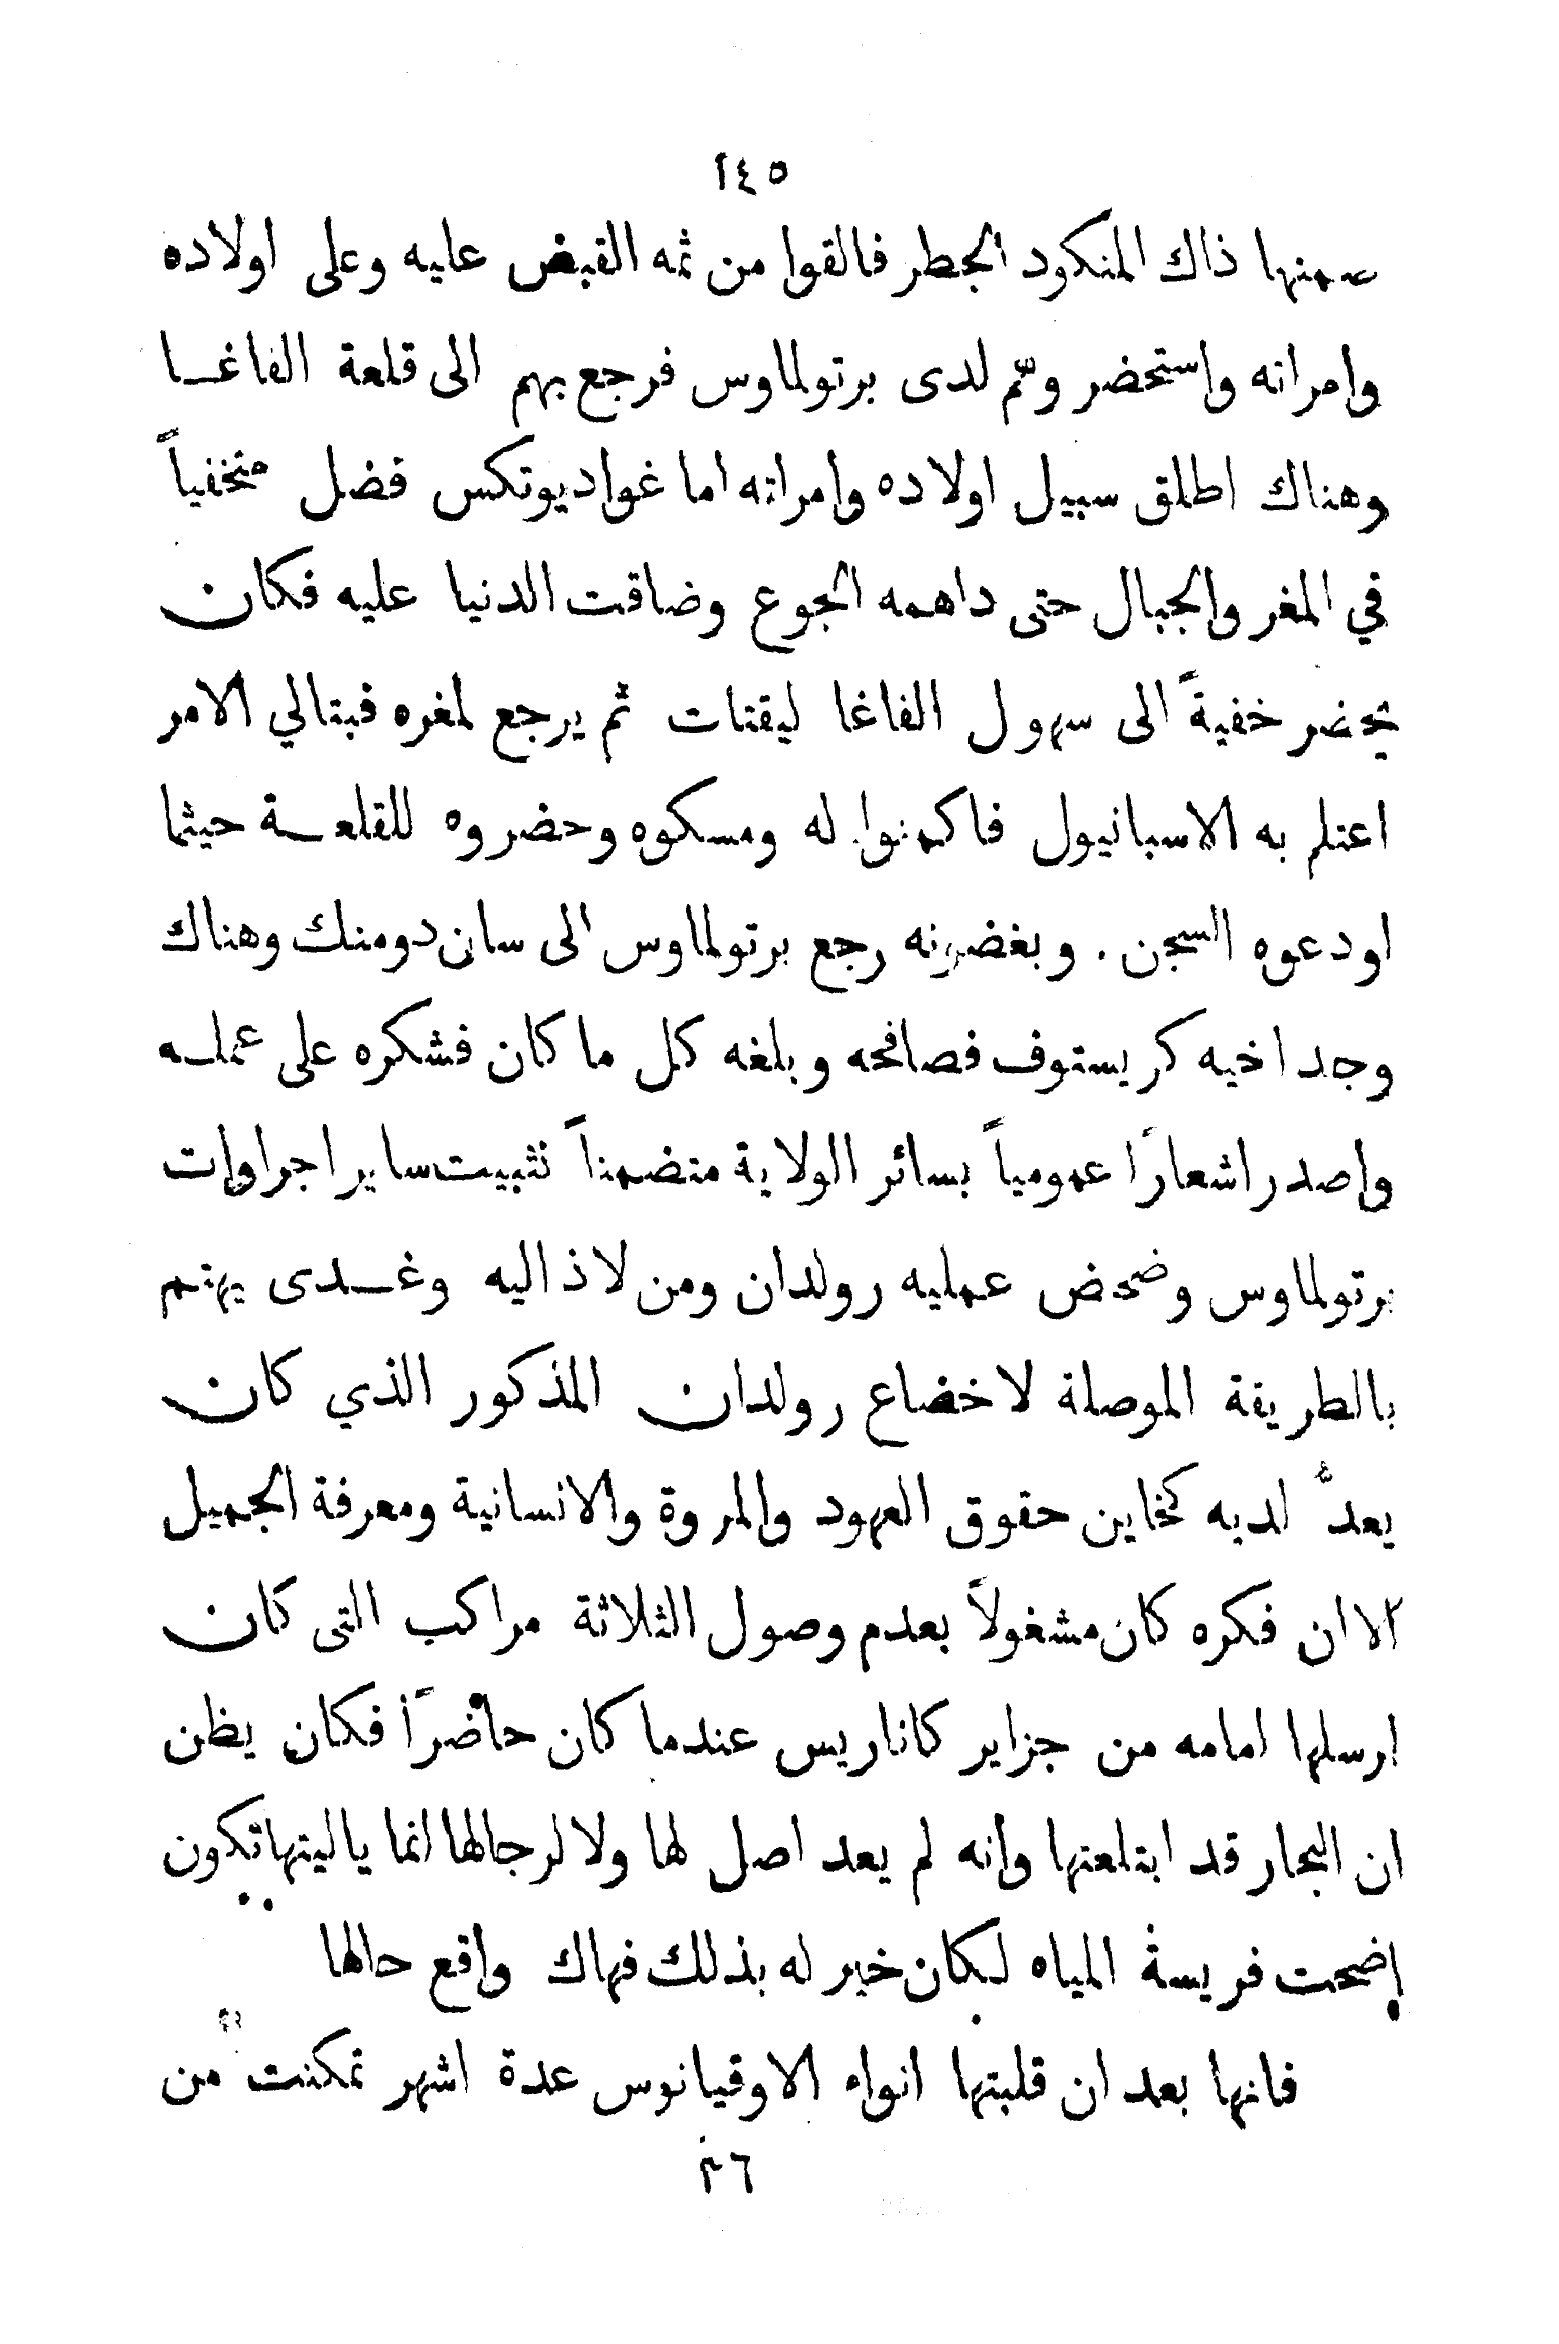 ١٤٥
سمنها ذاك المنكود الحظر فالقوا من ثمه القبض عليه وعلى اولاده
وامراته واستحضر وهم لدى برتولماوس فرجع بهم الى قلعة الفاغـا
وهناك اطلق سبيل اولاده وامراته اما غواديوتكس فضل متخفياً
في المغر والجبال حتى داهمه الجوع وضاقت الدنيا عليه فكان
يحضر خفيةً الى سهول الفاغا ليقتات ثم يرجع لمغره فبتالي الامر
اعتلم به الاسبانيول فاكمنوا له ومسكوه وحضروه للقلعـة حيثما
اودعوه السجن . وبغضونه رجع برتولماوس الى سان دومنك وهناك
وجد اخيه كريستوف فصافحه وبلغه كل ما كان فشكره على عملـه
واصدر اشعارًا عمومياً بسائر الولاية متضمناً تثبيت ساير اجراوات
برتولماوس وضحض عمليه رولدان ومن لاذ اليه وغـدى يهتم
بالطريقة الموصلة لاخضاع رولدان المذكور الذي كان
يعدُّ لديه كخاين حقوق العهود والمروة والانسانية ومعرفة الجميل
الا ان فكره كان مشغولاً بعدم وصول الثلاثة مراكب التى كان
ارسلها امامه من جزاير كاناريس عندما كان حاضرًا فكان يظن
ان البحار قد ابتلعتها وانه لم يعد اصل لها ولا لرجالها انما يا ليتها تكون
اضحت فريسة المياه لكان خير له بذلك فهاك واقع حالها
فانها بعد ان قلبتها انواء الاوقيانوس عدة اشهر تمكنت من